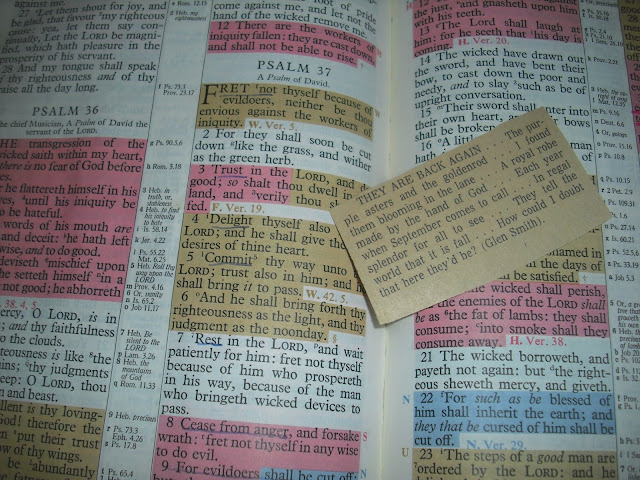 27 Let them shout for joy, and
be glad, that favour my righteous
cause: yea, let them say con-
tinually, Let the LORD be magni-
fied, which hath pleasure in the
prosperity of his servant.
28 And my tongue shall speak
of thy righteousness and of thy
praise all the day long.
PSALM 36
the chief Musician, A Psalm of David the
servant of the LORD.
THE transgression of the
wicked saith within my heart,
there is no fear of God before
he flattereth himself in his
eyes, until his iniquity be
to be hateful.
words of his mouth are
and deceit: he hath left
wise, and to do good.
deviseth mischief upon
he setteth himself in a
not good; he abhorreth
38. 4, 5.
mercy, O LORD, is in
; and thy faithfulness
to the clouds.
righteousness is like the
ins; thy judgments
deep: O LORD, thou
n and beast.
ellent is thy loving-
God! therefore the
put their trust
ow of thy wings.
be abundantly
Rom. 12.15
2 Heb. my
righteousness
g Ps. 73.3
Prov. 23.17
g Ps. 90.5,6
h Rom. 3.18
3 Heb. in
truth, or,
stableness
4 Heb. to find
his iniquity
to hate
i Is. 58.14
k Jer. 4.22
l Ps. 55.22
Mat. 6.25
5 Heb. Roll thy
way upon the
LORD
m Prov. 4.16
6 Or, vanity
n Is. 65.2
o Job 11.17
7 Heb. Be
silent to the
LORD
p Lam. 3.26
8 Heb. the
mountains
of God
q Rom. 11.33
9 Heb. precious
r Ps. 73.3
s Eph. 4.26
s Ps. 17.8
t Ps. 65.4
come against me, and let not the
hand of the wicked remove me.
12 There are the workers of
iniquity fallen: they are cast down,
and shall not be able to rise.
PSALM 37
A Psalm of David.
FRET not thyself because of
evildoers, neither be thou
envious against the workers of
iniquity. W. Ver. 5.
2 For they shall soon be cut
down like the grass, and wither
as the green herb.
3 Trust in the LORD, and do
good; so shalt thou dwell in the
land, and verily thou shalt be
fed. F. Ver. 19.
4 Delight thyself also in the
LORD; and he shall give thee the
desires of thine heart.
5 Commit thy way unto the
LORD; trust also in him; and he
shall bring it to pass. W. 42. 5.
6 And he shall bring forth thy
righteousness as the light, and thy
judgment as the noonday.
7 Rest in the LORD, and wait
patiently for him: fret not thyself
because of him who prospereth
in his way, because of the man
who bringeth wicked devices to
pass.
8 Cease from anger, and forsake
wrath: fret not thyself in any wise
to do evil.
9 For evildoers shall be cut off:
S
H
N
U
the just, and gnasheth upon
with his teeth.
13 The Lord shall laugh at
him: for he seeth that his day is
coming. H. Ver. 20.
14 The wicked have drawn out
the sword, and have bent their
bow, to cast down the poor and
needy, and to slay such as be of
upright conversation.
15 Their sword shall enter into
their own heart, and their bows
shall be broken.
16 A little
THEY ARE BACK AGAIN . . . The pur-
ple asters and the goldenrod . . . I found
them blooming in the lane . . . A royal robe
made by the hand of God . . . Each year
when September comes to call . . . In regal
splendor for all to see . . . They tell the
world that it is fall . . . How could I doubt
that here they'd be? (Glen Smith).
be satisfied.
wicked shall perish,
the enemies of the LORD shall
be as the fat of lambs: they shall
consume; into smoke shall they
consume away. H. Ver. 38.
21 The wicked borroweth, and
payeth not again: but the right-
eous sheweth mercy, and giveth.
22 For such as be blessed of
him shall inherit the earth; and
they that be cursed of him shall be
cut off. N. Ver. 29.
23 The steps of a good man are
ordered by the LORD: and he